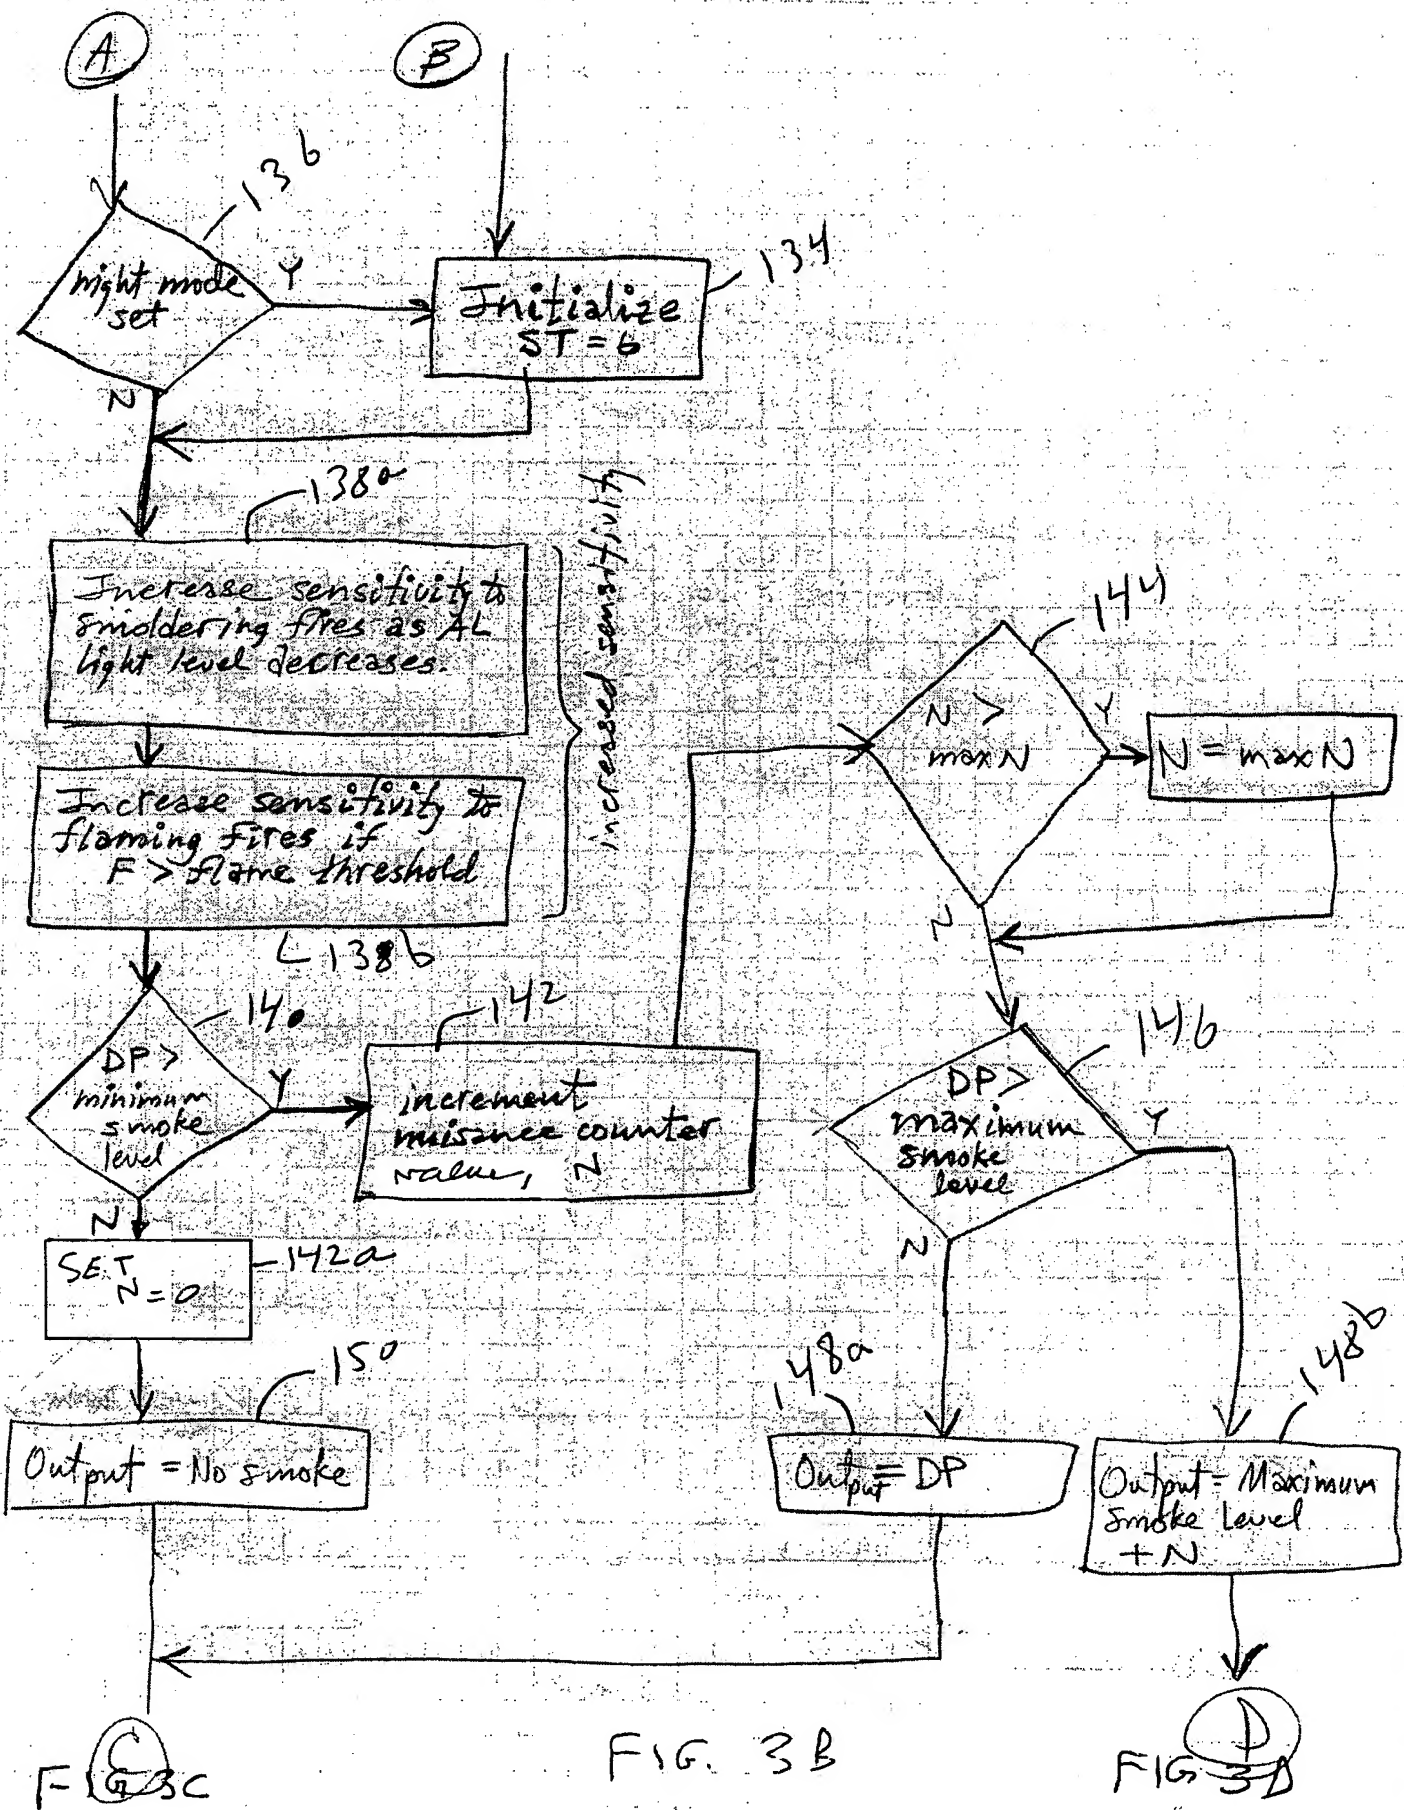 A
B
136
night mode
set
Y
N
134
Initialize
ST = 6
138a
Increase sensitivity to
smoldering fires as AL
light level decreases.
Increase sensitivity to
flaming fires if
F > flame threshold
138b
increased sensitivity
140
DP >
minimum
smoke
level
Y
N
142
increment
nuisance counter
value, N
142a
SET
N = 0
150
Output = No smoke
144
N >
max N
Y
N
N = max N
146
DP >
maximum
smoke
level
Y
N
148a
Output = DP
148b
Output = Maximum
smoke Level
+ N
C
FIG 3C
FIG. 3B
D
FIG 3D